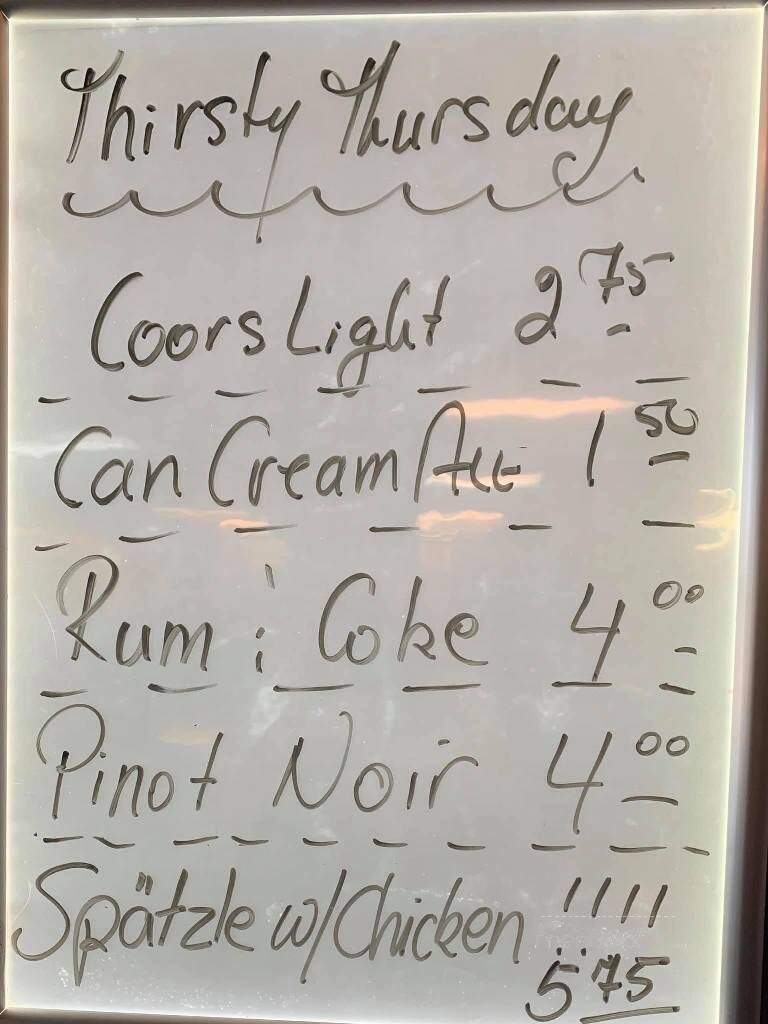 Thirsty Thursday
Coors Light 2 75
Can Cream Ale 1 50
Rum & Coke 4 00
Pinot Noir 4 00
Spätzle w/Chicken !!!!
5 75